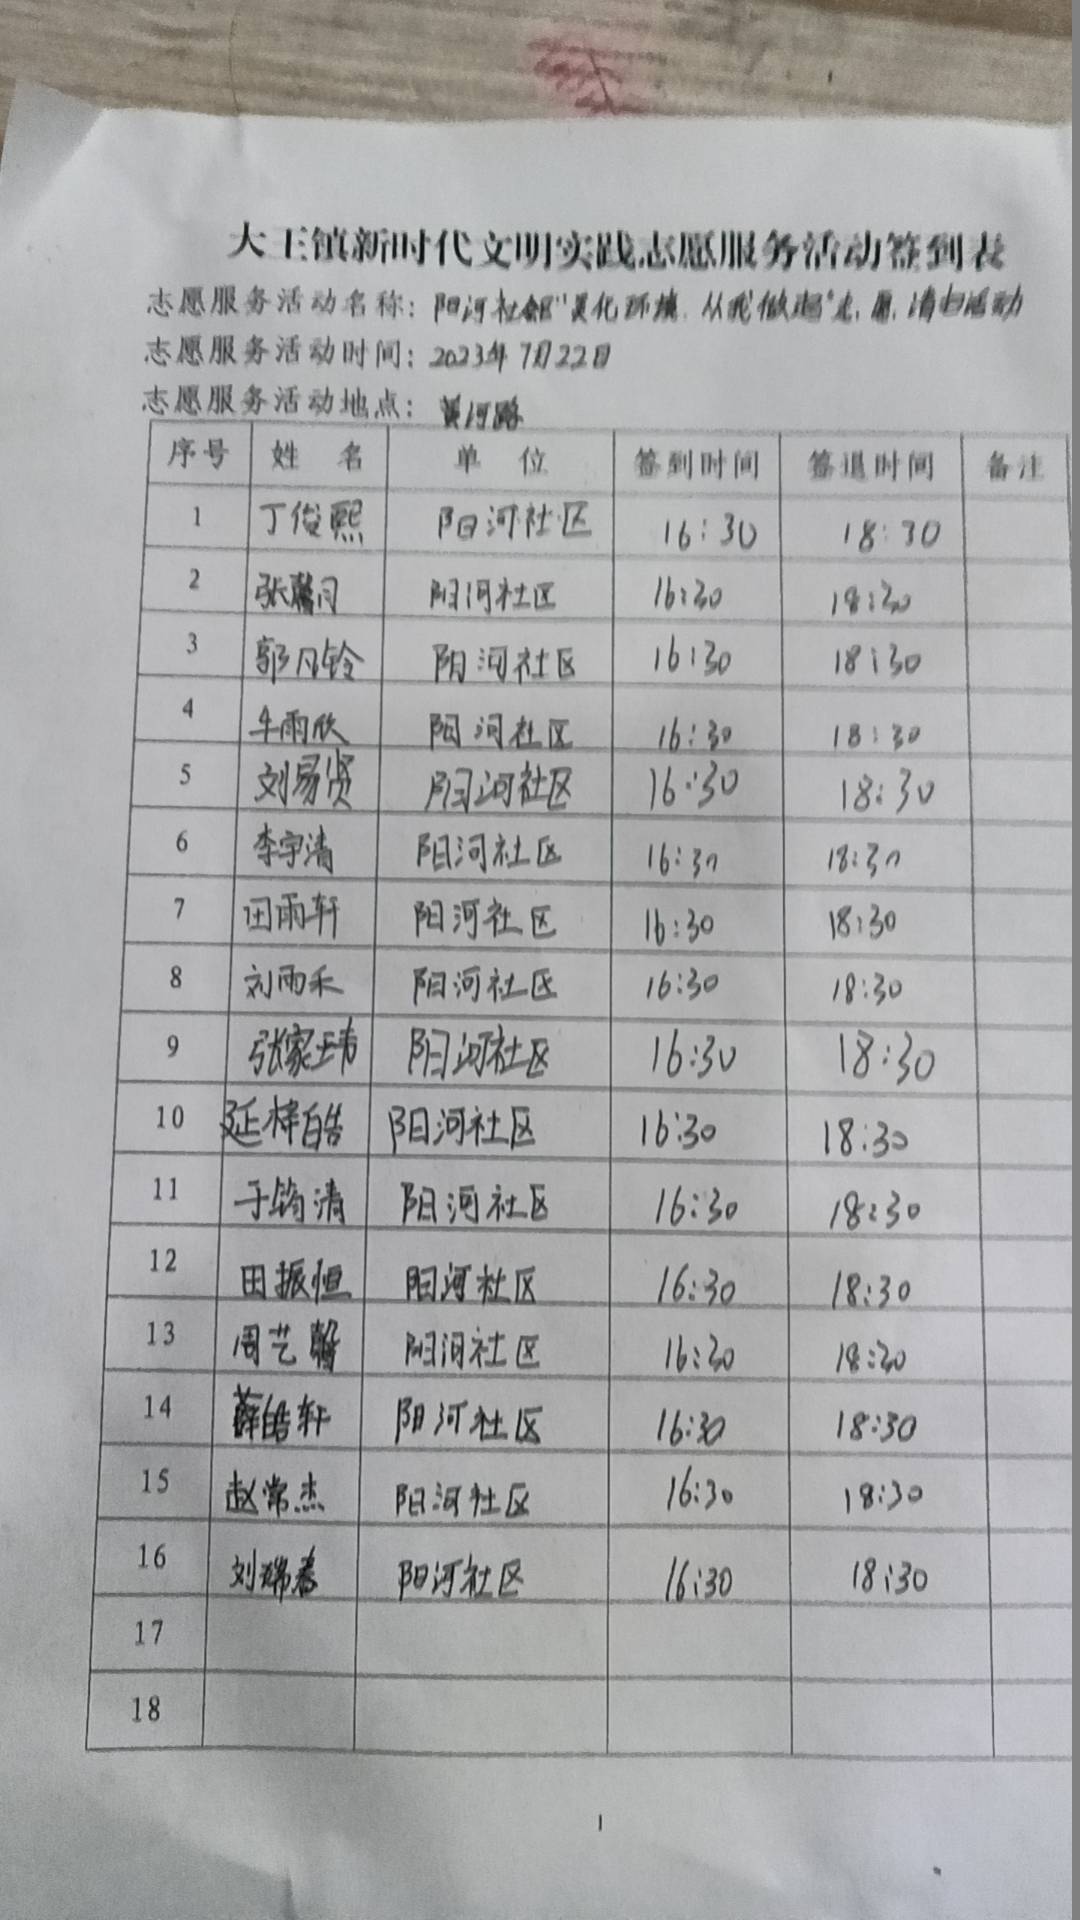 大王镇新时代文明实践志愿服务活动签到表
志愿服务活动名称：阳河社区"美化环境，从我做起"志愿清扫活动
志愿服务活动时间：2023年7月22日
志愿服务活动地点：黄河路
序号 姓名 单位 签到时间 签退时间 备注
1 丁俊熙 阳河社区 16:30 18:30
2 张馨月 阳河社区 16:30 18:30
3 郭凡铃 阳河社区 16:30 18:30
4 牟雨欣 阳河社区 16:30 18:30
5 刘易贤 阳河社区 16:30 18:30
6 李宇清 阳河社区 16:30 18:30
7 田雨轩 阳河社区 16:30 18:30
8 刘雨禾 阳河社区 16:30 18:30
9 张家玮 阳河社区 16:30 18:30
10 延梓皓 阳河社区 16:30 18:30
11 于钧清 阳河社区 16:30 18:30
12 田振恒 阳河社区 16:30 18:30
13 周艺馨 阳河社区 16:30 18:30
14 薛皓轩 阳河社区 16:30 18:30
15 赵常杰 阳河社区 16:30 18:30
16 刘瑞春 阳河社区 16:30 18:30
17
18
1